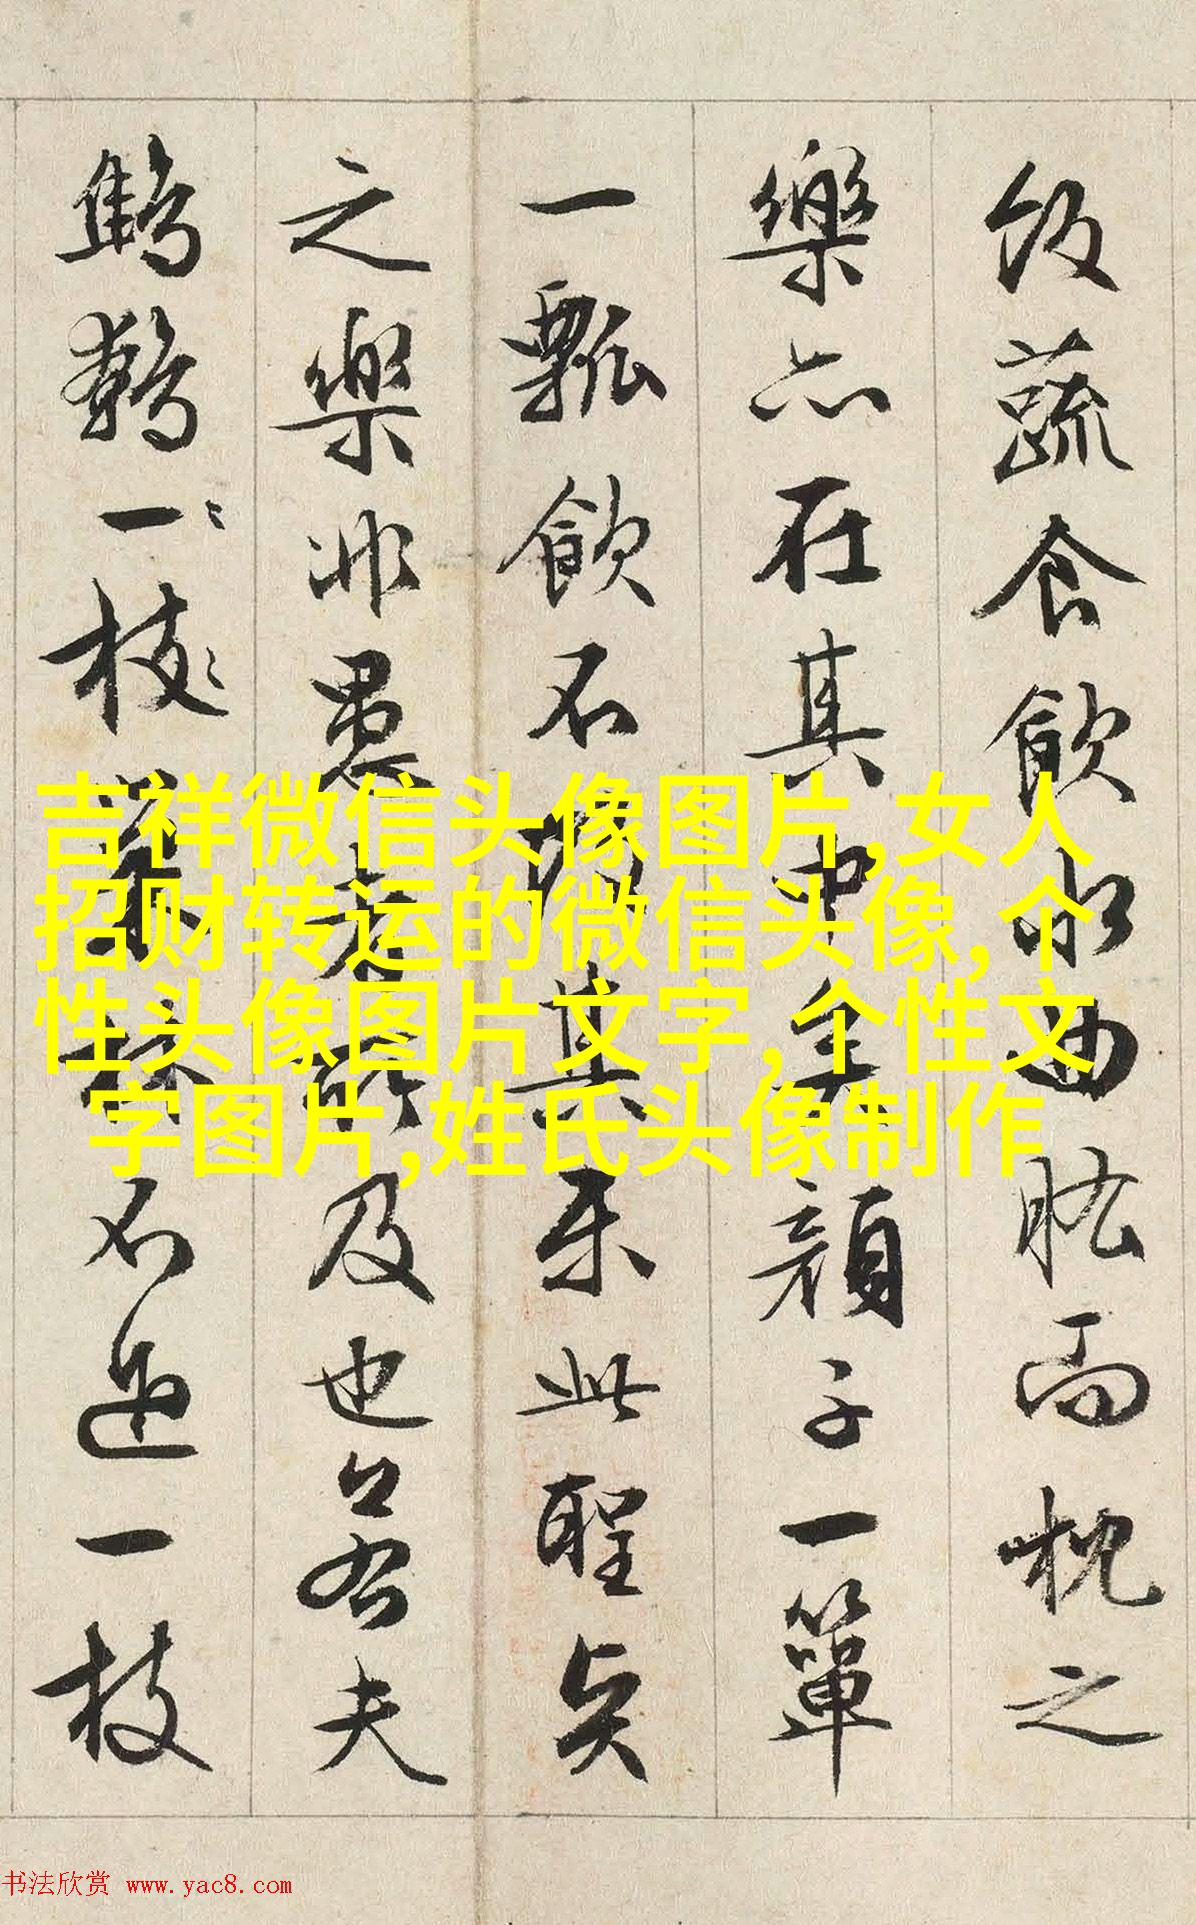 飯蔬食飲水曲肱而枕之
樂亦在其中矣顏子一簞
一瓢飲不改其樂此聖賢
之樂非愚者所及也若夫
鷦鷯一枝巢林不過一枝
吉祥微信头像图片,女人
招财转运的微信头像,个
性头像图片文字,个性文
字图片,姓氏头像制作
书法欣赏 www.yac8.com